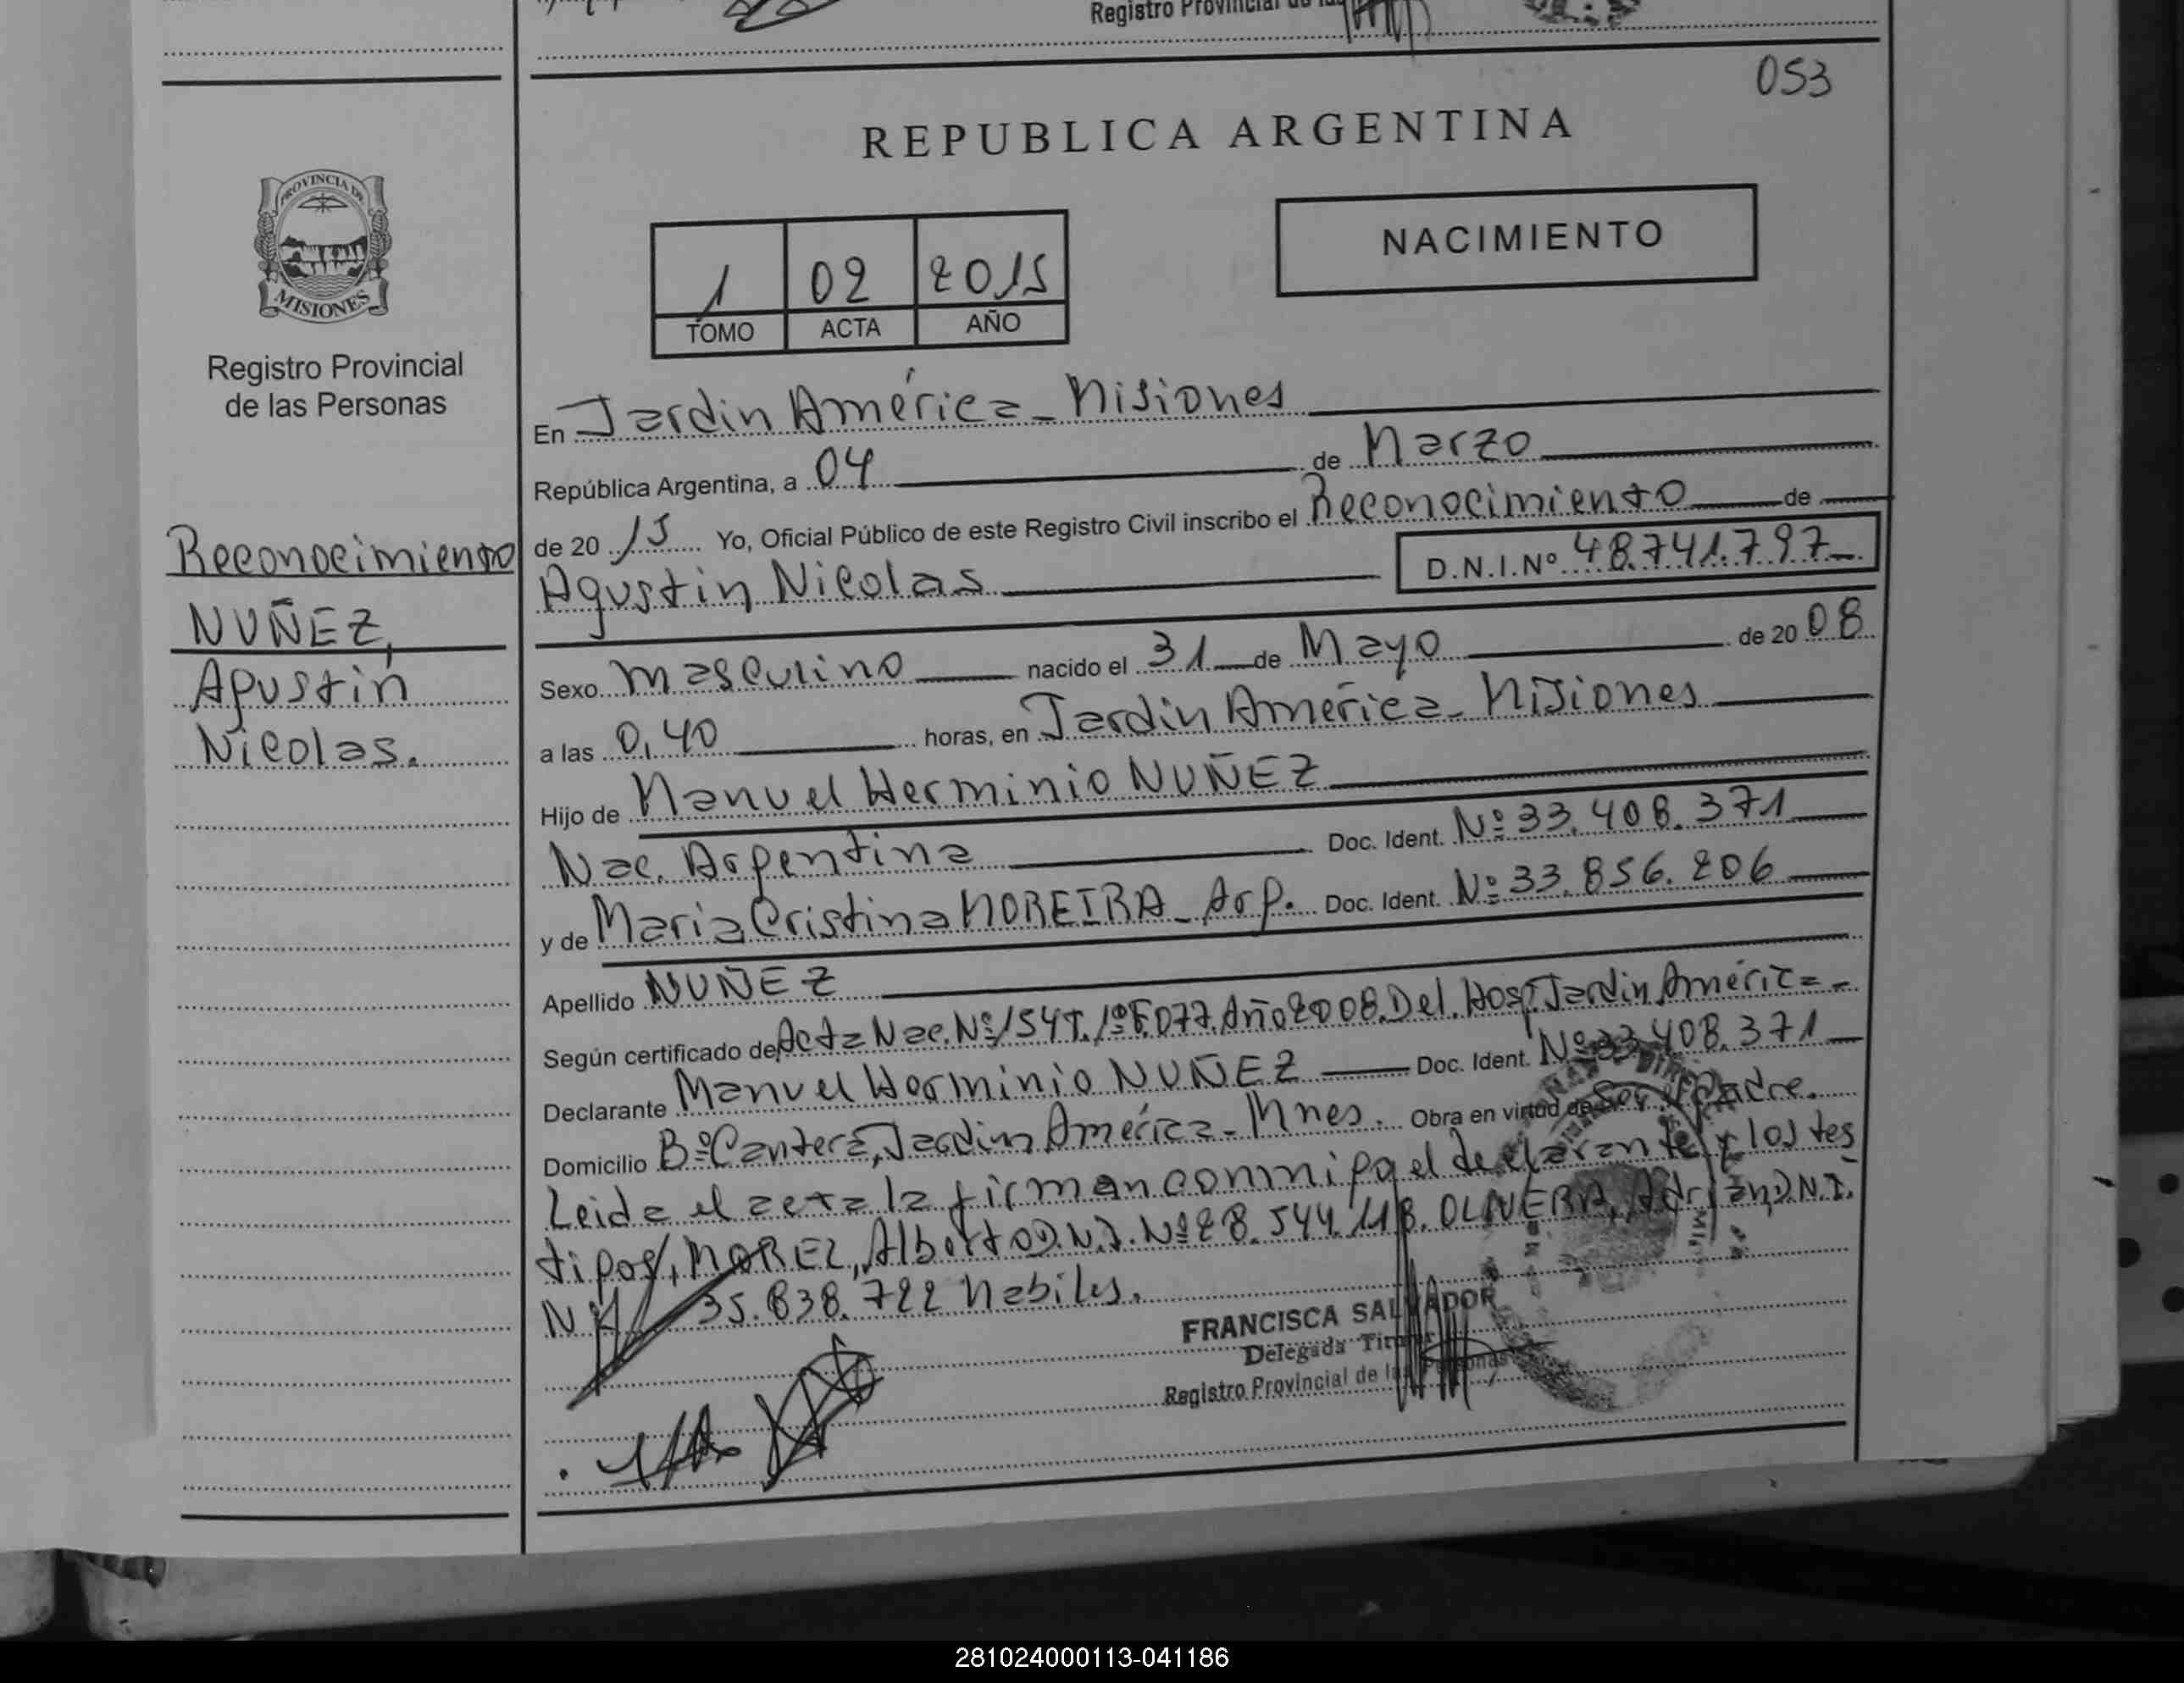 Registro Provincial de las
053
REPUBLICA ARGENTINA
PROVINCIA DE
MISIONES
Registro Provincial
de las Personas
1 02 2015
TOMO ACTA AÑO
NACIMIENTO
En Jardin América - Misiones
República Argentina, a 04 de Marzo
de 2015 Yo, Oficial Público de este Registro Civil inscribo el Reconocimiento de
Agustin Nicolas D.N.I.Nº 48.741.797
Reconocimiento
NUÑEZ,
Agustin
Nicolas.
Sexo masculino nacido el 31 de Mayo de 2008
a las 0,40 horas, en Jardin América - Misiones
Hijo de Manuel Herminio NUÑEZ
Nac. Argentina Doc. Ident. Nº 33.408.371
y de Maria Cristina MOREIRA - Arg. Doc. Ident. Nº 33.856.206
Apellido NUÑEZ
Según certificado de Acta Nac. Nº 154 T. 1º F. 077. Año 2008. Del. Hosp. Jardin América -
Declarante Manuel Herminio NUÑEZ Doc. Ident. Nº 33.408.371
Domicilio Bº Cantera, Jardin América - Mnes. Obra en virtud de Ser Padre.
Leida el acta la firman conmigo el declarante y los tes
tigos, MOREL, Alberto D.N.I. Nº 28.544.118. OLIVERA, Adrian, D.N.I.
Nº 35.838.722 habiles.
FRANCISCA SALVADOR
Delegada Titular
Registro Provincial de las Personas
281024000113-041186